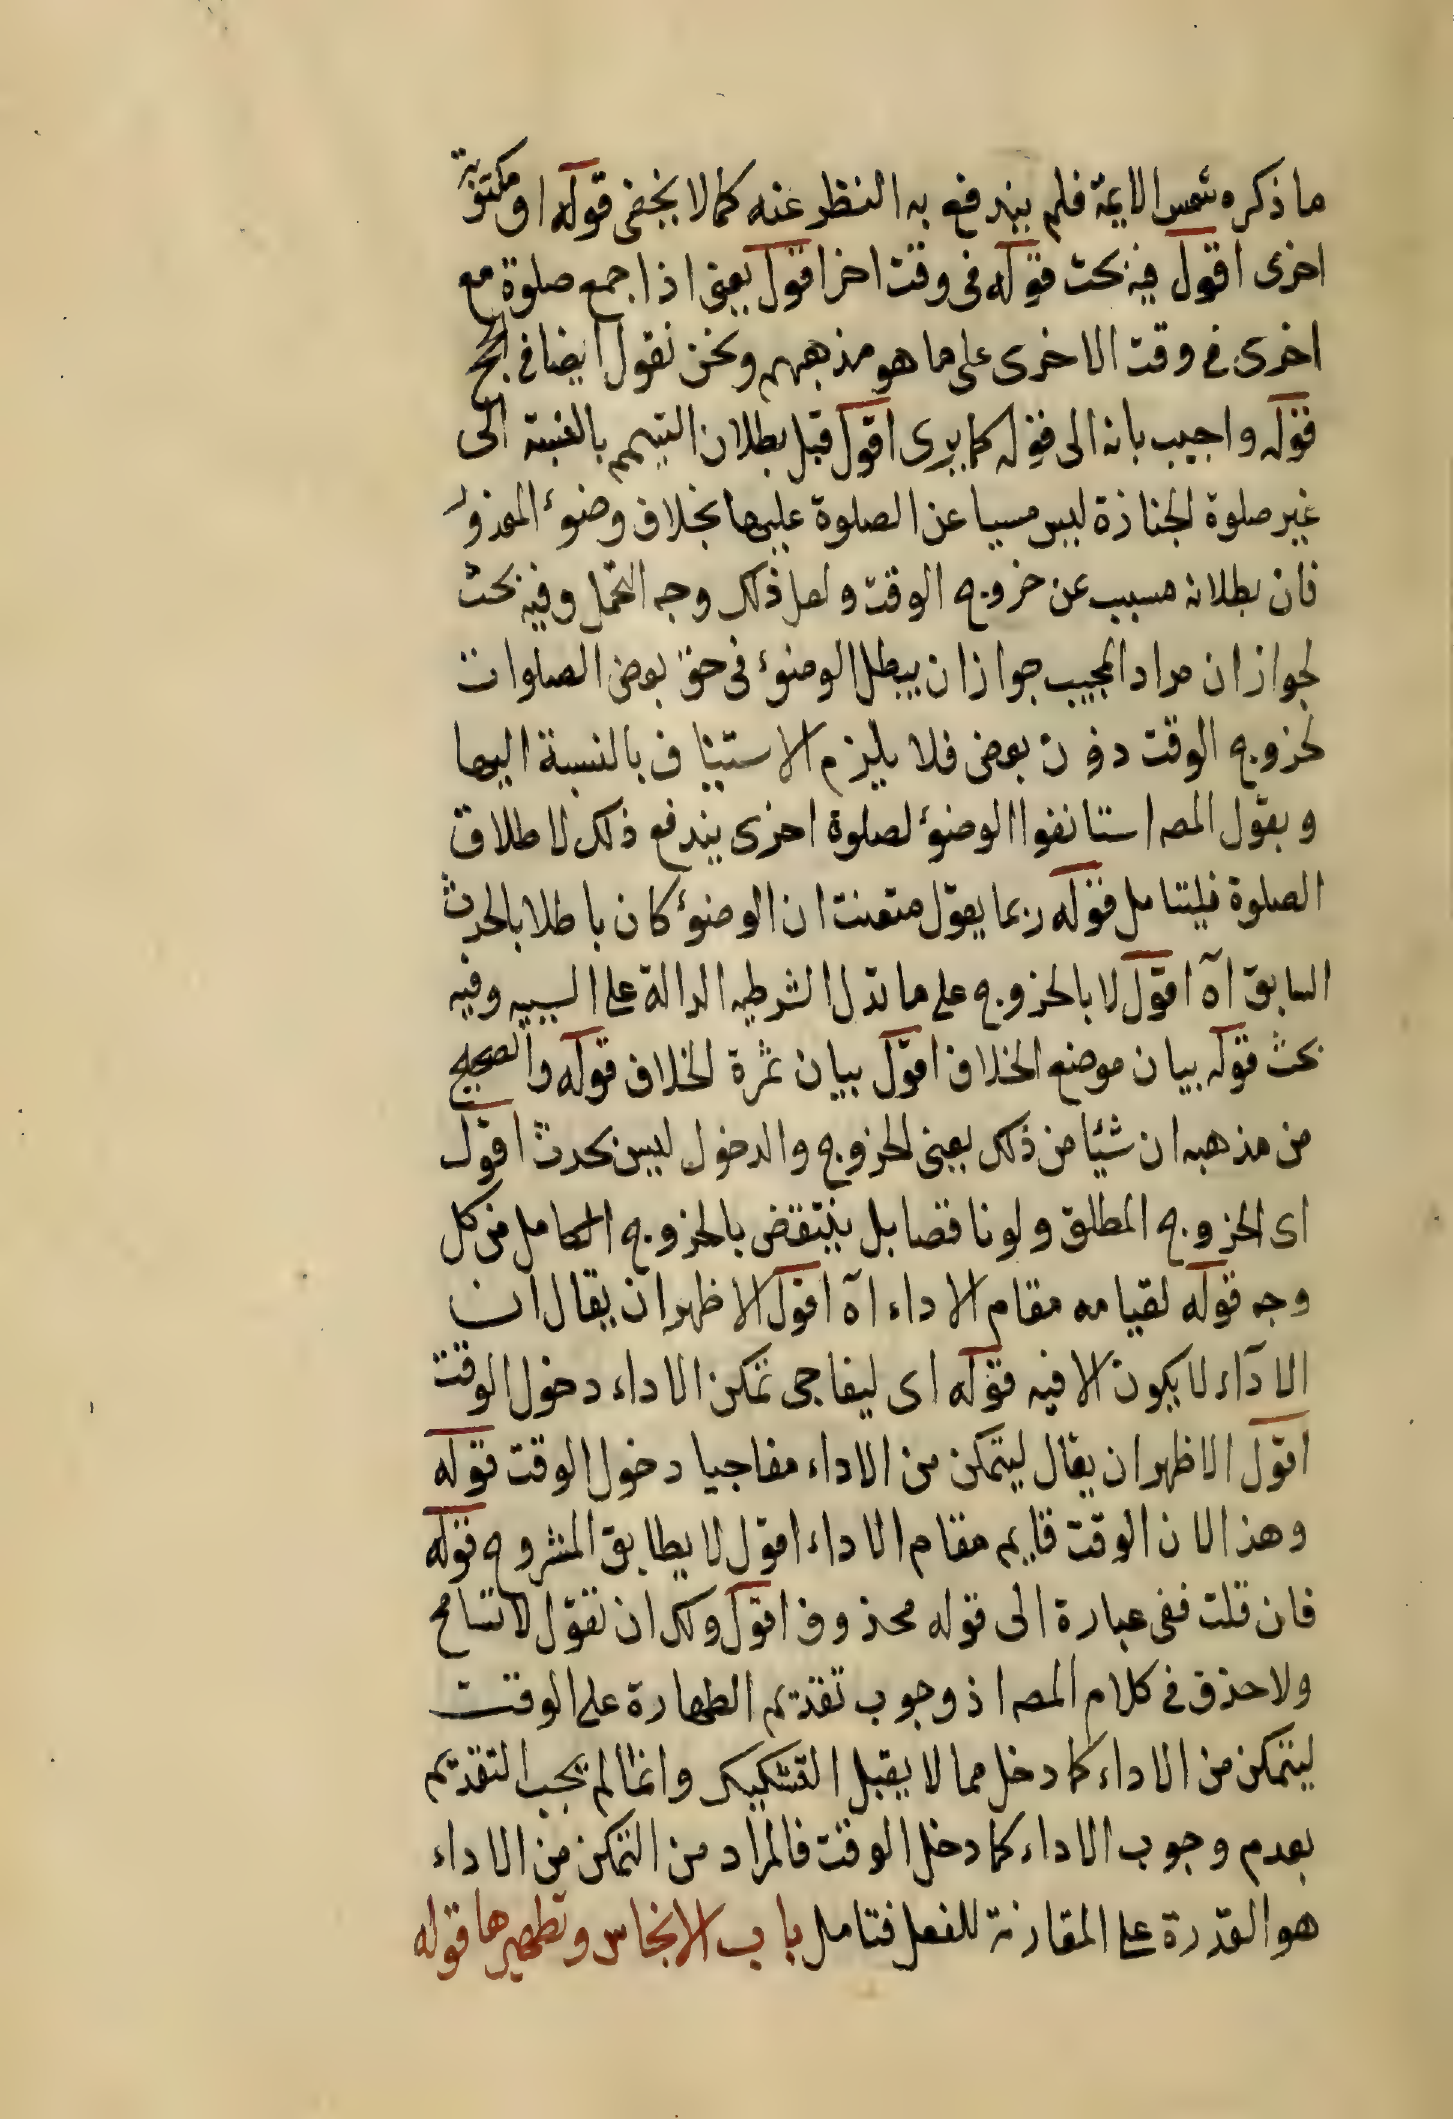 ما ذكره شمس الايمة فلم يندفع به النظر عنه كما لا يخفى قوله او مكتوبة
اخرى اقول فيه بحث قوله فى وقت اخر اقول يعنى اذا جمع صلوة مع
اخرى فى وقت الاخرى على ما هو مذهبهم ونحن نقول ايضا فى الحج
قوله واجيب بانه الى قوله كما يرى اقول قيل بطلان التيمم بالنسبة الى
غير صلوة الجنازة ليس مسببا عن الصلوة عليها بخلاف وضوء المعذور
فان بطلانه مسبب عن خروج الوقت ولعل ذلك وجه التحمل وفيه بحث
لجواز ان مراد المجيب جواز ان يبطل الوضوء فى حق بعض الصلوات
لخروج الوقت دون بعض فلا يلزم الاستيناف بالنسبة اليها
وبقول المصـ استانفوا الوضوء لصلوة اخرى يندفع ذلك لاطلاق
الصلوة فليتامل قوله ربما يقول متعنت ان الوضوء كان باطلا بالحدث
السابق آه اقول لا بالخروج على ما تدل الشرطيه الدالة على السببيه وفيه
بحث قوله بيان موضع الخلاف اقول بيان ثمرة الخلاف قوله والصحيح
من مذهبه ان شيئا من ذلك يعنى الخروج والدخول ليس بحدث اقول
اى الخروج المطلق ولو ناقصا بل ينتقض بالخروج الكامل من كل
وجه قوله لقيامه مقام الاداء آه اقول الاظهر ان يقال ان
الاداء لا يكون الا فيه قوله اى ليفاجى تمكن الاداء دخول الوقت
اقول الاظهر ان يقال ليتمكن من الاداء مفاجيا دخول الوقت قوله
وهذا لان الوقت قايم مقام الاداء اقول لا يطابق المشروح قوله
فان قلت ففى عبارة الى قوله محذوف اقول ولك ان تقول لا تسامح
ولا حذف فى كلام المصـ اذ وجوب تقديم الطهارة على الوقت
ليتمكن من الاداء كما دخل مما لا يقبل التشكيك وانما لم يجب التقديم
بعدم وجوب الاداء كما دخل الوقت فالمراد من التمكن من الاداء
هو القدرة على المقارنة للفعل فتامل باب الانجاس وتطهيرها قوله